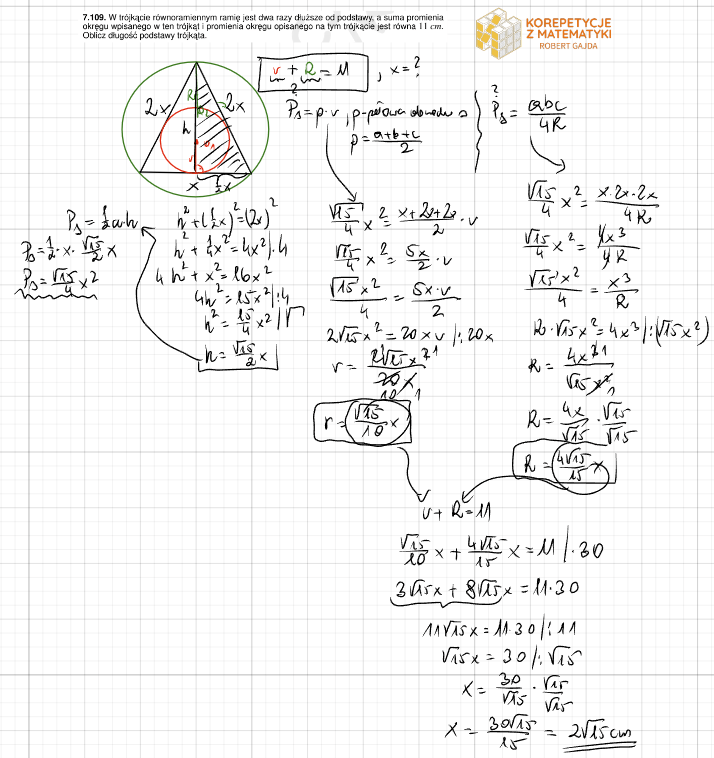 7.109. W trójkącie równoramiennym ramię jest dwa razy dłuższe od podstawy, a suma promienia
okręgu wpisanego w ten trójkąt i promienia okręgu opisanego na tym trójkącie jest równa 11 cm.
Oblicz długość podstawy trójkąta.
KOREPETYCJE
Z MATEMATYKI
ROBERT GAJDA
r + R = 11 , x = ?
2x
2x
R
h
r
x
½x
?
P△ = p·r , p - połowa obwodu △
p = (a+b+c)/2
?
P△ = abc/4R
P△ = ½a·h
P△ = ½·x·√15/2 x
P△ = √15/4 x²
h² + (½x)² = (2x)²
h² + ¼x² = 4x² |·4
4h² + x² = 16x²
4h² = 15x² |:4
h² = 15/4 x² |√
h = √15/2 x
√15/4 x² = (x+2x+2x)/2 · r
√15/4 x² = 5x/2 · r
√15x²/4 = 5x·r/2
2√15x² = 20xr |:20x
r = 2√15x²/20x
r = √15/10 x
√15/4 x² = x·2x·2x/4R
√15/4 x² = 4x³/4R
√15x²/4 = x³/R
R·√15x² = 4x³ |:(√15x²)
R = 4x³/√15x²
R = 4x/√15 · √15/√15
R = 4√15/15 x
r + R = 11
√15/10 x + 4√15/15 x = 11 |·30
3√15x + 8√15x = 11·30
11√15x = 11·30 |:11
√15x = 30 |:√15
x = 30/√15 · √15/√15
x = 30√15/15 = 2√15 cm